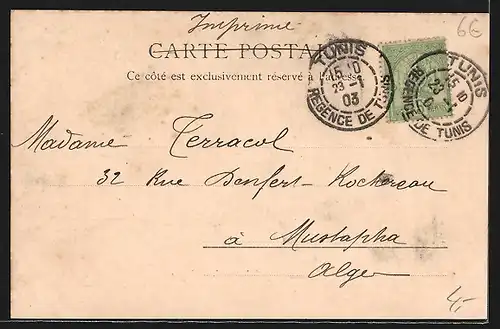 Imprimé
6€
CARTE POSTALE
Ce côté est exclusivement réservé à l'adresse
TUNIS
15 10
23 -1
03
REGENCE DE TUNIS
TUNIS
15 10
23 -1
REGENCE DE TUNIS
Madame Terracol
32 Rue Denfert-Rochereau
à Mustapha
Alger
4,-